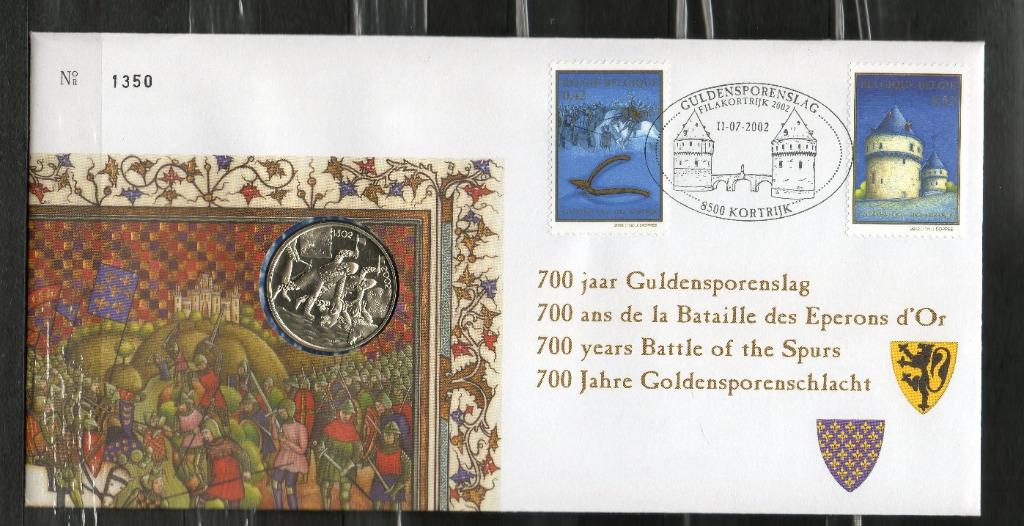 Nº 1350
BELGIE-BELGIQUE
0,42
GULDENSPORENSLAG
FILAKORTRIJK 2002
11-07-2002
8500 KORTRIJK
BELGIQUE-BELGIË
0,52
1302
700 jaar Guldensporenslag
700 ans de la Bataille des Eperons d'Or
700 years Battle of the Spurs
700 Jahre Goldensporenschlacht